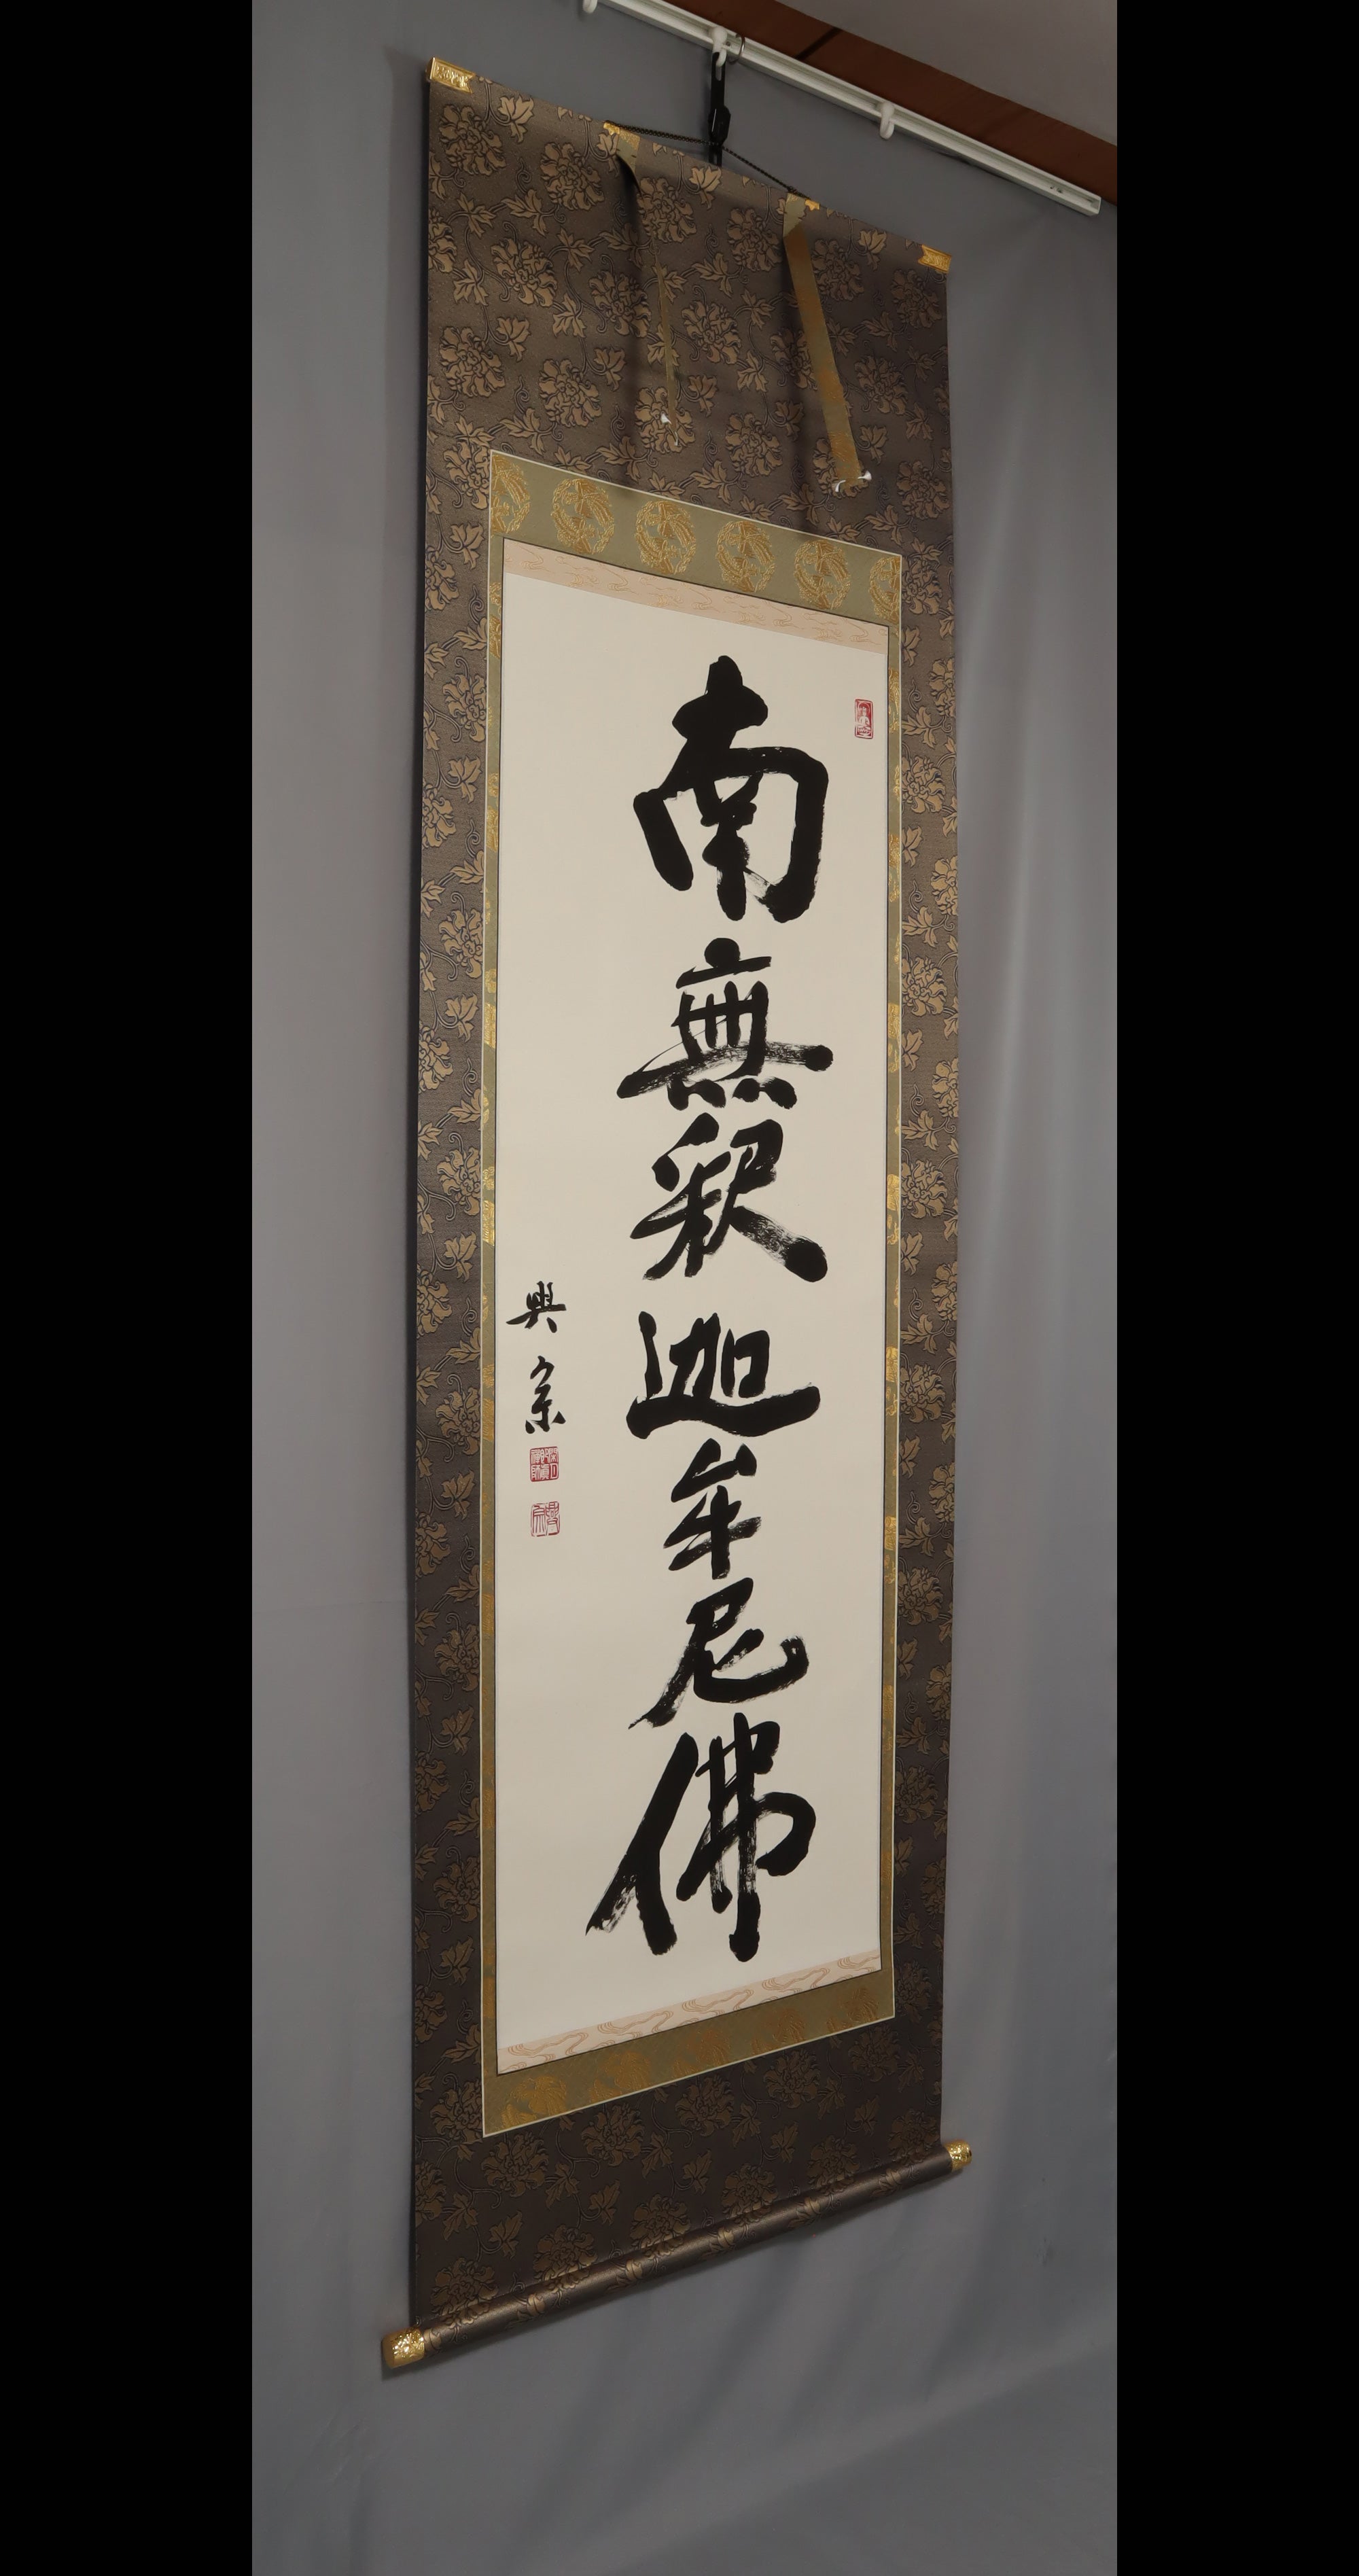 南無釈迦牟尼佛
興宗